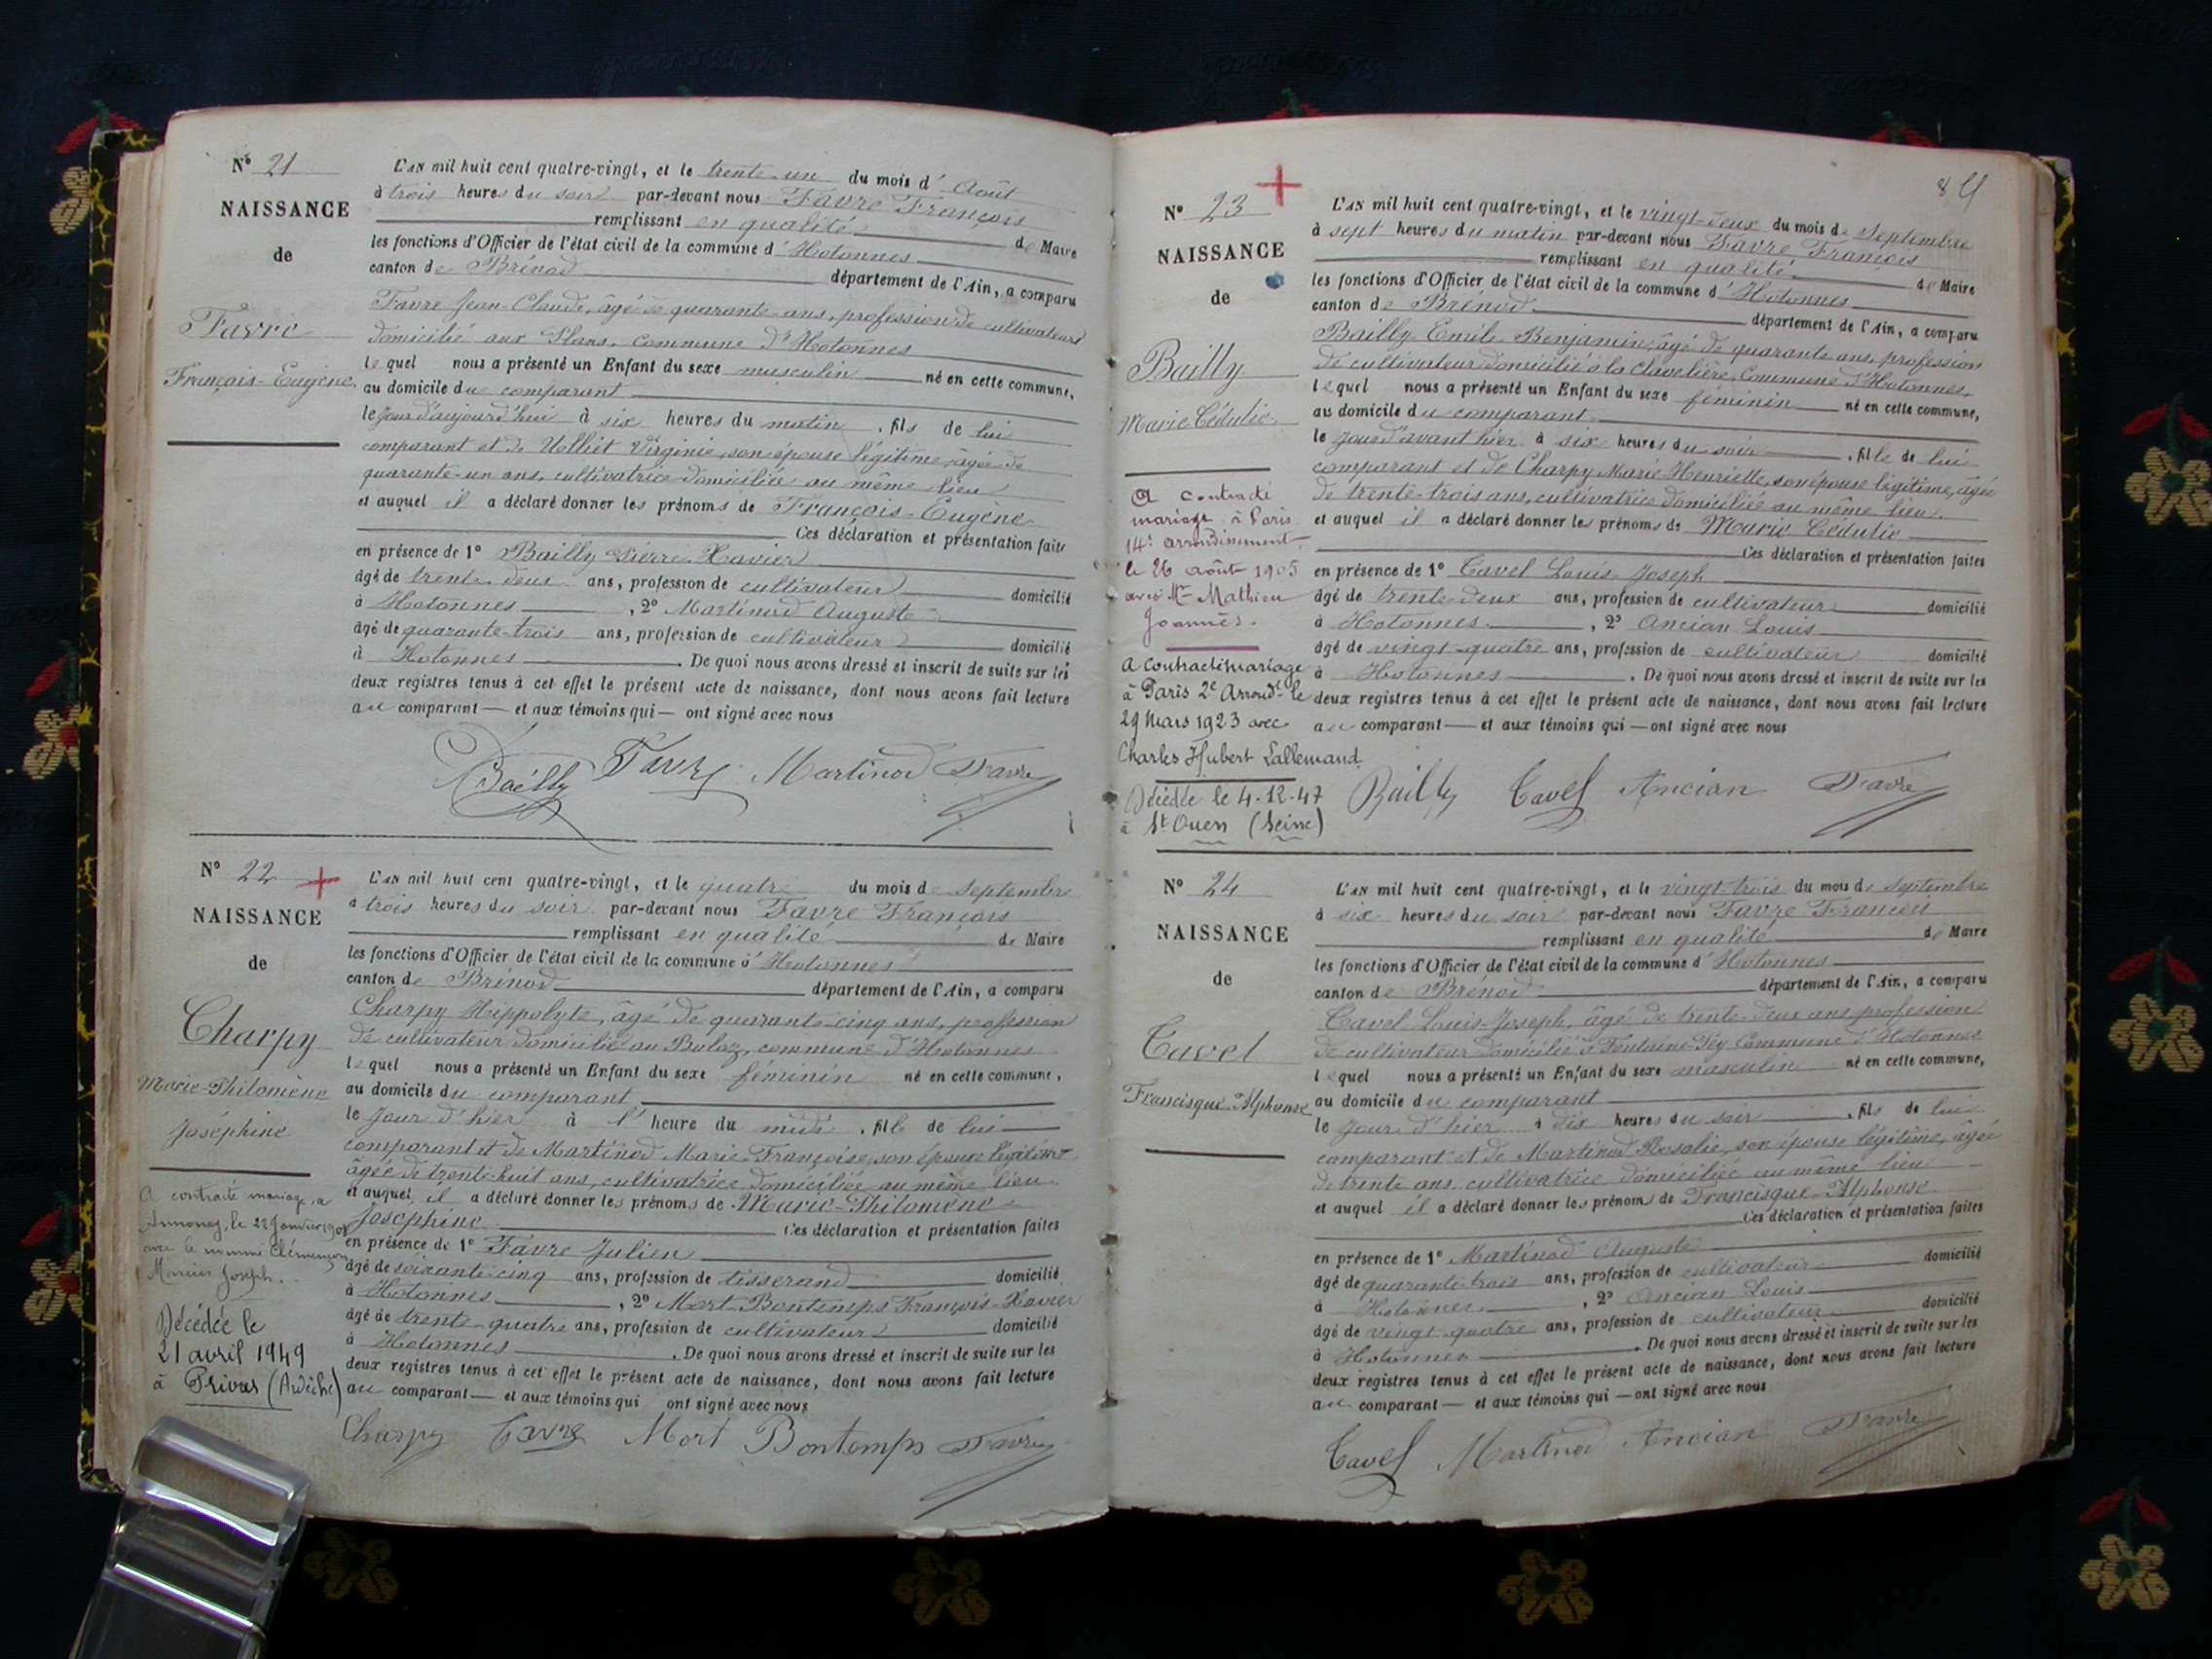 N° 21
NAISSANCE
de
Favre
François-Eugène
L'AN mil huit cent quatre-vingt, et le trente-un du mois d'Août
à trois heures du soir par-devant nous Favre François
remplissant en qualité de Maire
les fonctions d'Officier de l'état civil de la commune d'Hotonnes
canton de Brénod département de l'Ain, a comparu
Favre Jean-Claude, âgé de quarante ans, profession de cultivateur
domicilié aux Plans, commune d'Hotonnes
lequel nous a présenté un Enfant du sexe masculin né en cette commune,
au domicile du comparant
le jour d'aujourd'hui à six heures du matin, fils de lui
comparant et de Volliet Virginie, son épouse légitime, âgée de
quarante-un ans, cultivatrice domiciliée au même lieu
et auquel il a déclaré donner les prénoms de François-Eugène
Ces déclaration et présentation faites
en présence de 1° Bailly Pierre-Xavier
âgé de trente-deux ans, profession de cultivateur domicilié
à Hotonnes, 2° Martinod Auguste
âgé de quarante-trois ans, profession de cultivateur domicilié
à Hotonnes. De quoi nous avons dressé et inscrit de suite sur les
deux registres tenus à cet effet le présent acte de naissance, dont nous avons fait lecture
au comparant et aux témoins qui ont signé avec nous
Bailly Favre Martinod Favre
N° 22
NAISSANCE
de
Charpy
Marie-Philomène
Joséphine
A contracté mariage, à
Annonay, le 22 Janvier
avec le nommé Clémençon
Joseph.
Décédée le
21 avril 1949
à Privas (Ardèche)
L'AN mil huit cent quatre-vingt, et le quatre du mois de Septembre
à trois heures du soir par-devant nous Favre François
remplissant en qualité de Maire
les fonctions d'Officier de l'état civil de la commune d'Hotonnes
canton de Brénod département de l'Ain, a comparu
Charpy Hippolyte, âgé de quarante-cinq ans, profession
de cultivateur domicilié au Buloz, commune d'Hotonnes
lequel nous a présenté un Enfant du sexe féminin né en cette commune,
au domicile du comparant
le jour d'hier à l'heure du midi, fille de lui
comparant et de Martinod Marie-Françoise, son épouse légitime
âgée de trente-huit ans, cultivatrice domiciliée au même lieu
et auquel il a déclaré donner les prénoms de Marie-Philomène
Joséphine Ces déclaration et présentation faites
en présence de 1° Favre Julien
âgé de soixante-cinq ans, profession de tisserand domicilié
à Hotonnes, 2° Mort-Bontemps François-Xavier
âgé de trente-quatre ans, profession de cultivateur domicilié
à Hotonnes. De quoi nous avons dressé et inscrit de suite sur les
deux registres tenus à cet effet le présent acte de naissance, dont nous avons fait lecture
au comparant et aux témoins qui ont signé avec nous
Charpy Favre Mort Bontemps Favre
N° 23
NAISSANCE
de
Bailly
Marie Cédulie
A contracté
mariage à Paris
14e arrondissement
le 26 août 1905
avec Mr Mathieu
Joannès.
A contracté mariage
à Paris 2e Arrondt le
29 Mars 1923 avec
Charles Hubert Lallemand
Décédée le 4-12-47
à St Ouen (Seine)
L'AN mil huit cent quatre-vingt, et le vingt-deux du mois de Septembre
à sept heures du matin par-devant nous Favre François
remplissant en qualité de Maire
les fonctions d'Officier de l'état civil de la commune d'Hotonnes
canton de Brénod département de l'Ain, a comparu
Bailly Emile Benjamin, âgé de quarante ans, profession
de cultivateur domicilié à la Clavelière, Commune d'Hotonnes.
lequel nous a présenté un Enfant du sexe féminin né en cette commune,
au domicile du comparant
le jour d'avant hier à six heures du soir, fille de lui
comparant et de Charpy Marie Henriette, son épouse légitime, âgée
de trente-trois ans, cultivatrice domiciliée au même lieu.
et auquel il a déclaré donner les prénoms de Marie Cédulie
Ces déclaration et présentation faites
en présence de 1° Cavel Louis-Joseph
âgé de trente-deux ans, profession de cultivateur domicilié
à Hotonnes, 2° Ancian Louis
âgé de vingt-quatre ans, profession de cultivateur domicilié
à Hotonnes. De quoi nous avons dressé et inscrit de suite sur les
deux registres tenus à cet effet le présent acte de naissance, dont nous avons fait lecture
au comparant et aux témoins qui ont signé avec nous
Bailly Cavel Ancian Favre
N° 24
NAISSANCE
de
Cavel
Francisque-Alphonse
L'AN mil huit cent quatre-vingt, et le vingt-trois du mois de Septembre
à six heures du soir par-devant nous Favre François
remplissant en qualité de Maire
les fonctions d'Officier de l'état civil de la commune d'Hotonnes
canton de Brénod département de l'Ain, a comparu
Cavel Louis-Joseph, âgé de trente-deux ans profession
de cultivateur domicilié à Commune d'Hotonnes
lequel nous a présenté un Enfant du sexe masculin né en cette commune,
au domicile du comparant
le jour d'hier à dix heures du soir, fils de lui
comparant et de Martinod Rosalie, son épouse légitime, âgée
de trente ans, cultivatrice domiciliée au même lieu
et auquel il a déclaré donner les prénoms de Francisque-Alphonse
Ces déclaration et présentation faites
en présence de 1° Martinod Auguste
âgé de quarante-trois ans, profession de cultivateur domicilié
à Hotonnes, 2° Ancian Louis
âgé de vingt-quatre ans, profession de cultivateur domicilié
à Hotonnes. De quoi nous avons dressé et inscrit de suite sur les
deux registres tenus à cet effet le présent acte de naissance, dont nous avons fait lecture
au comparant et aux témoins qui ont signé avec nous
Cavel Martinod Ancian Favre